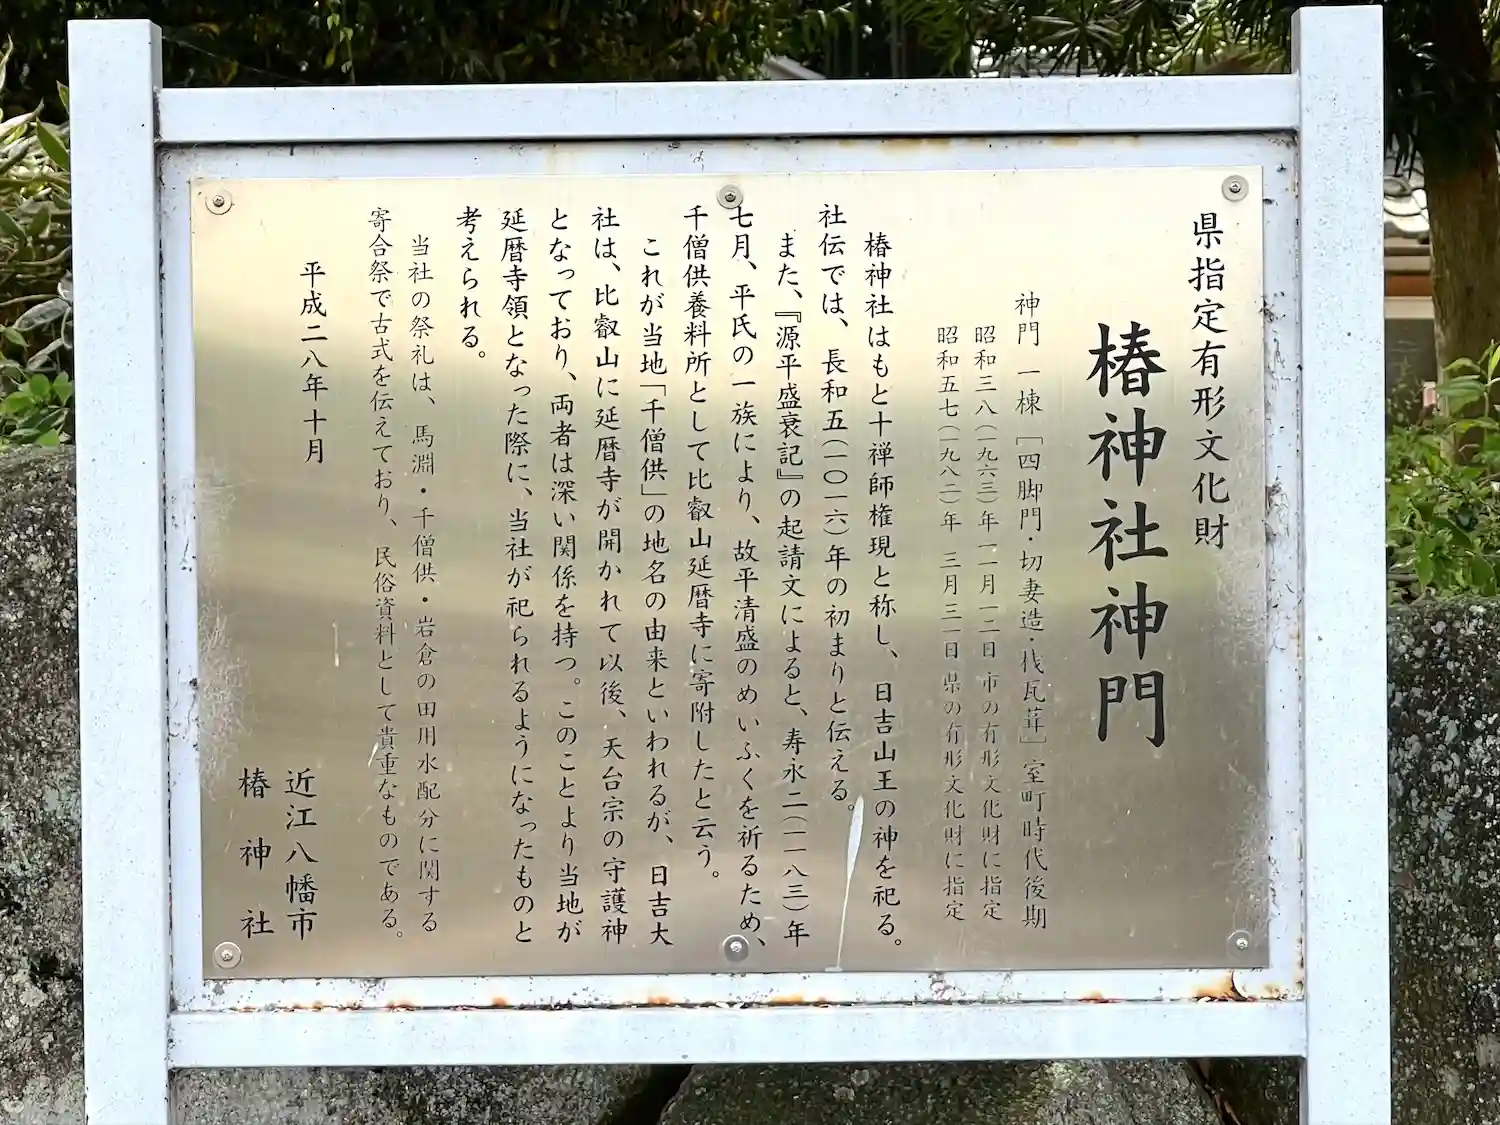 県指定有形文化財
椿神社神門
神門 一棟 [四脚門・切妻造・桟瓦葺] 室町時代後期
昭和三八(一九六三)年一一月一二日 市の有形文化財に指定
昭和五七(一九八二)年 三月三一日 県の有形文化財に指定
椿神社はもと十禅師権現と称し、日吉山王の神を祀る。
社伝では、長和五(一〇一六)年の初まりと伝える。
また、『源平盛衰記』の起請文によると、寿永二(一一八三)年
七月、平氏の一族により、故平清盛のめいふくを祈るため、
千僧供養料所として比叡山延暦寺に寄附したと云う。
これが当地「千僧供」の地名の由来といわれるが、日吉大
社は、比叡山に延暦寺が開かれて以後、天台宗の守護神
となっており、両者は深い関係を持つ。このことより当地が
延暦寺領となった際に、当社が祀られるようになったものと
考えられる。
当社の祭礼は、馬淵・千僧供・岩倉の田用水配分に関する
寄合祭で古式を伝えており、民俗資料として貴重なものである。
平成二八年十月
近江八幡市
椿神社